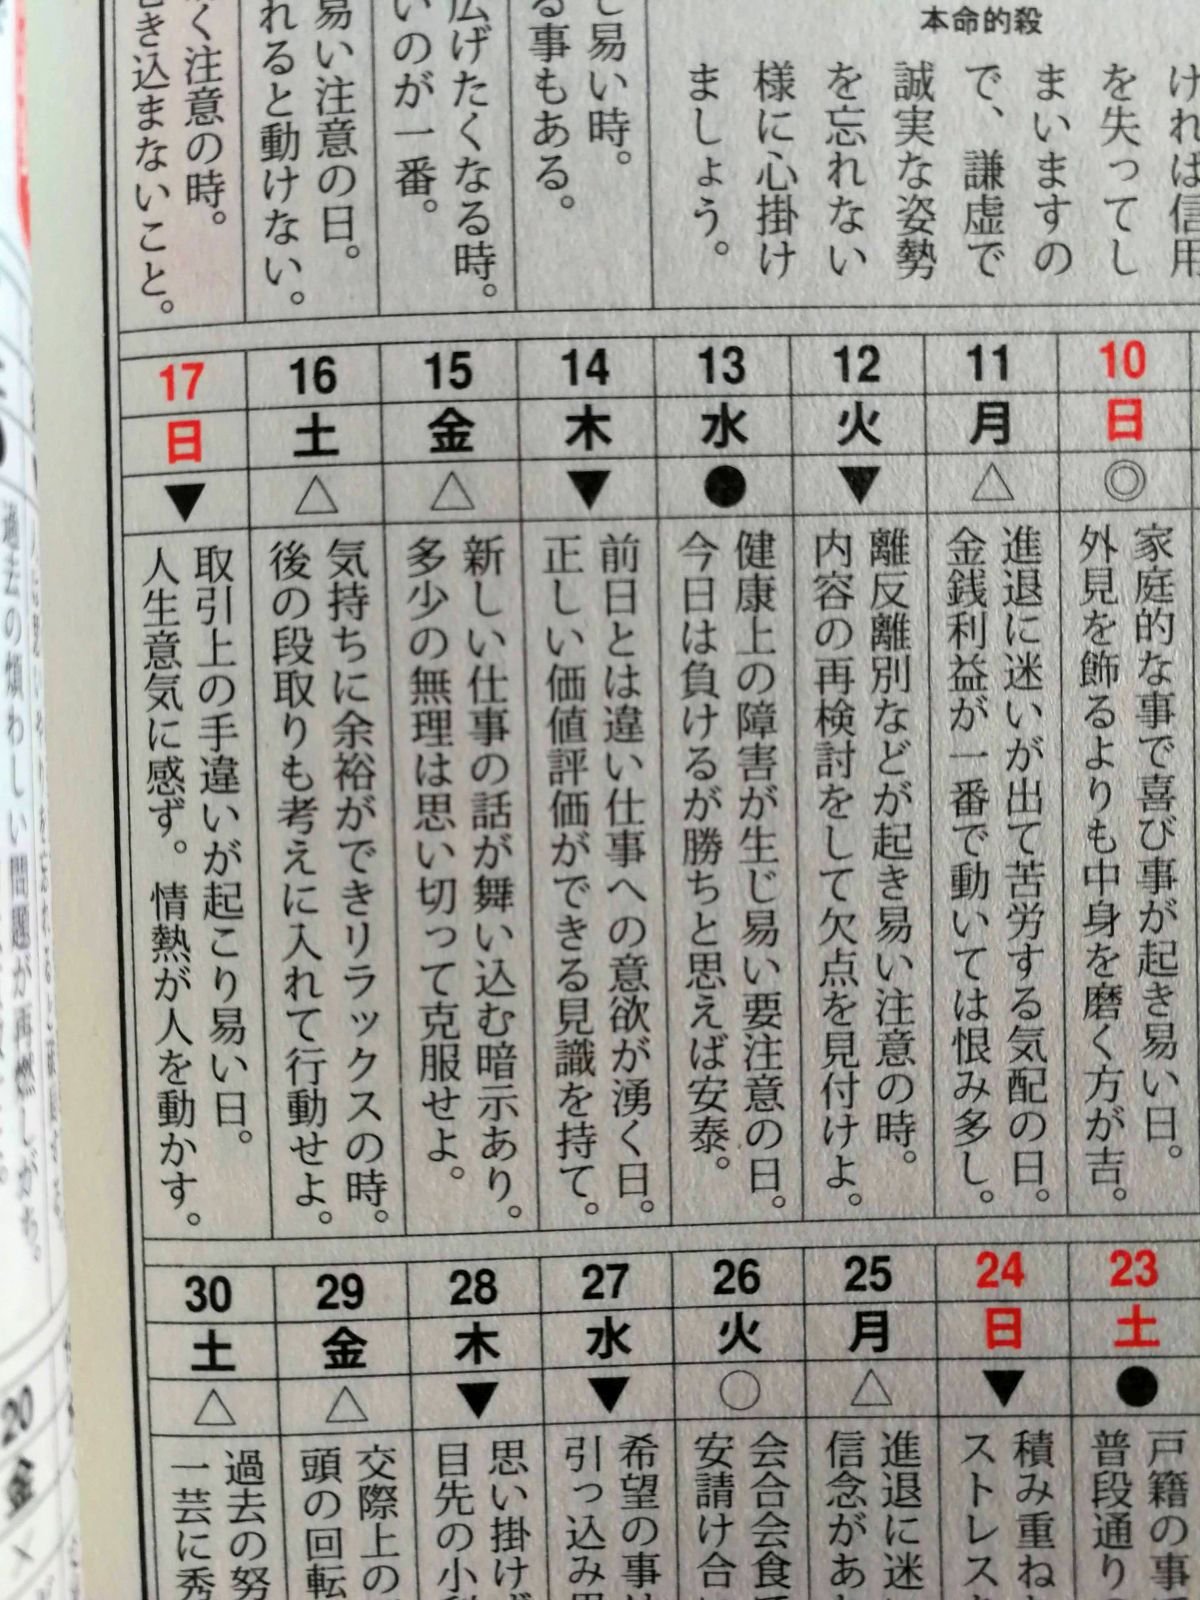 本命的殺
ければ信用
を失ってし
まいますの
で、謙虚で
誠実な姿勢
を忘れない
様に心掛け
ましょう。
易い時。
る事もある。
広げたくなる時。
いのが一番。
易い注意の日。
れると動けない。
く注意の時。
き込まないこと。
10
日
◎
家庭的な事で喜び事が起き易い日。
外見を飾るよりも中身を磨く方が吉。
11
月
△
進退に迷いが出て苦労する気配の日。
金銭利益が一番で動いては恨み多し。
12
火
▼
離反離別などが起き易い注意の時。
内容の再検討をして欠点を見付けよ。
13
水
●
健康上の障害が生じ易い要注意の日。
今日は負けるが勝ちと思えば安泰。
14
木
▼
前日とは違い仕事への意欲が湧く日。
正しい価値評価ができる見識を持て。
15
金
△
新しい仕事の話が舞い込む暗示あり。
多少の無理は思い切って克服せよ。
16
土
△
気持ちに余裕ができリラックスの時。
後の段取りも考えに入れて行動せよ。
17
日
▼
取引上の手違いが起こり易い日。
人生意気に感ず。情熱が人を動かす。
23
土
●
戸籍の事
普段通り
24
日
▼
積み重ね
ストレス
25
月
△
進退に迷
信念があ
26
火
○
会合会食
安請け合
27
水
▼
希望の事
引っ込み
28
木
▼
思い掛け
目先の小
29
金
△
交際上の
頭の回転
30
土
△
過去の努
一芸に秀
過去の煩わしい問題が再燃しがち。
20
金
×